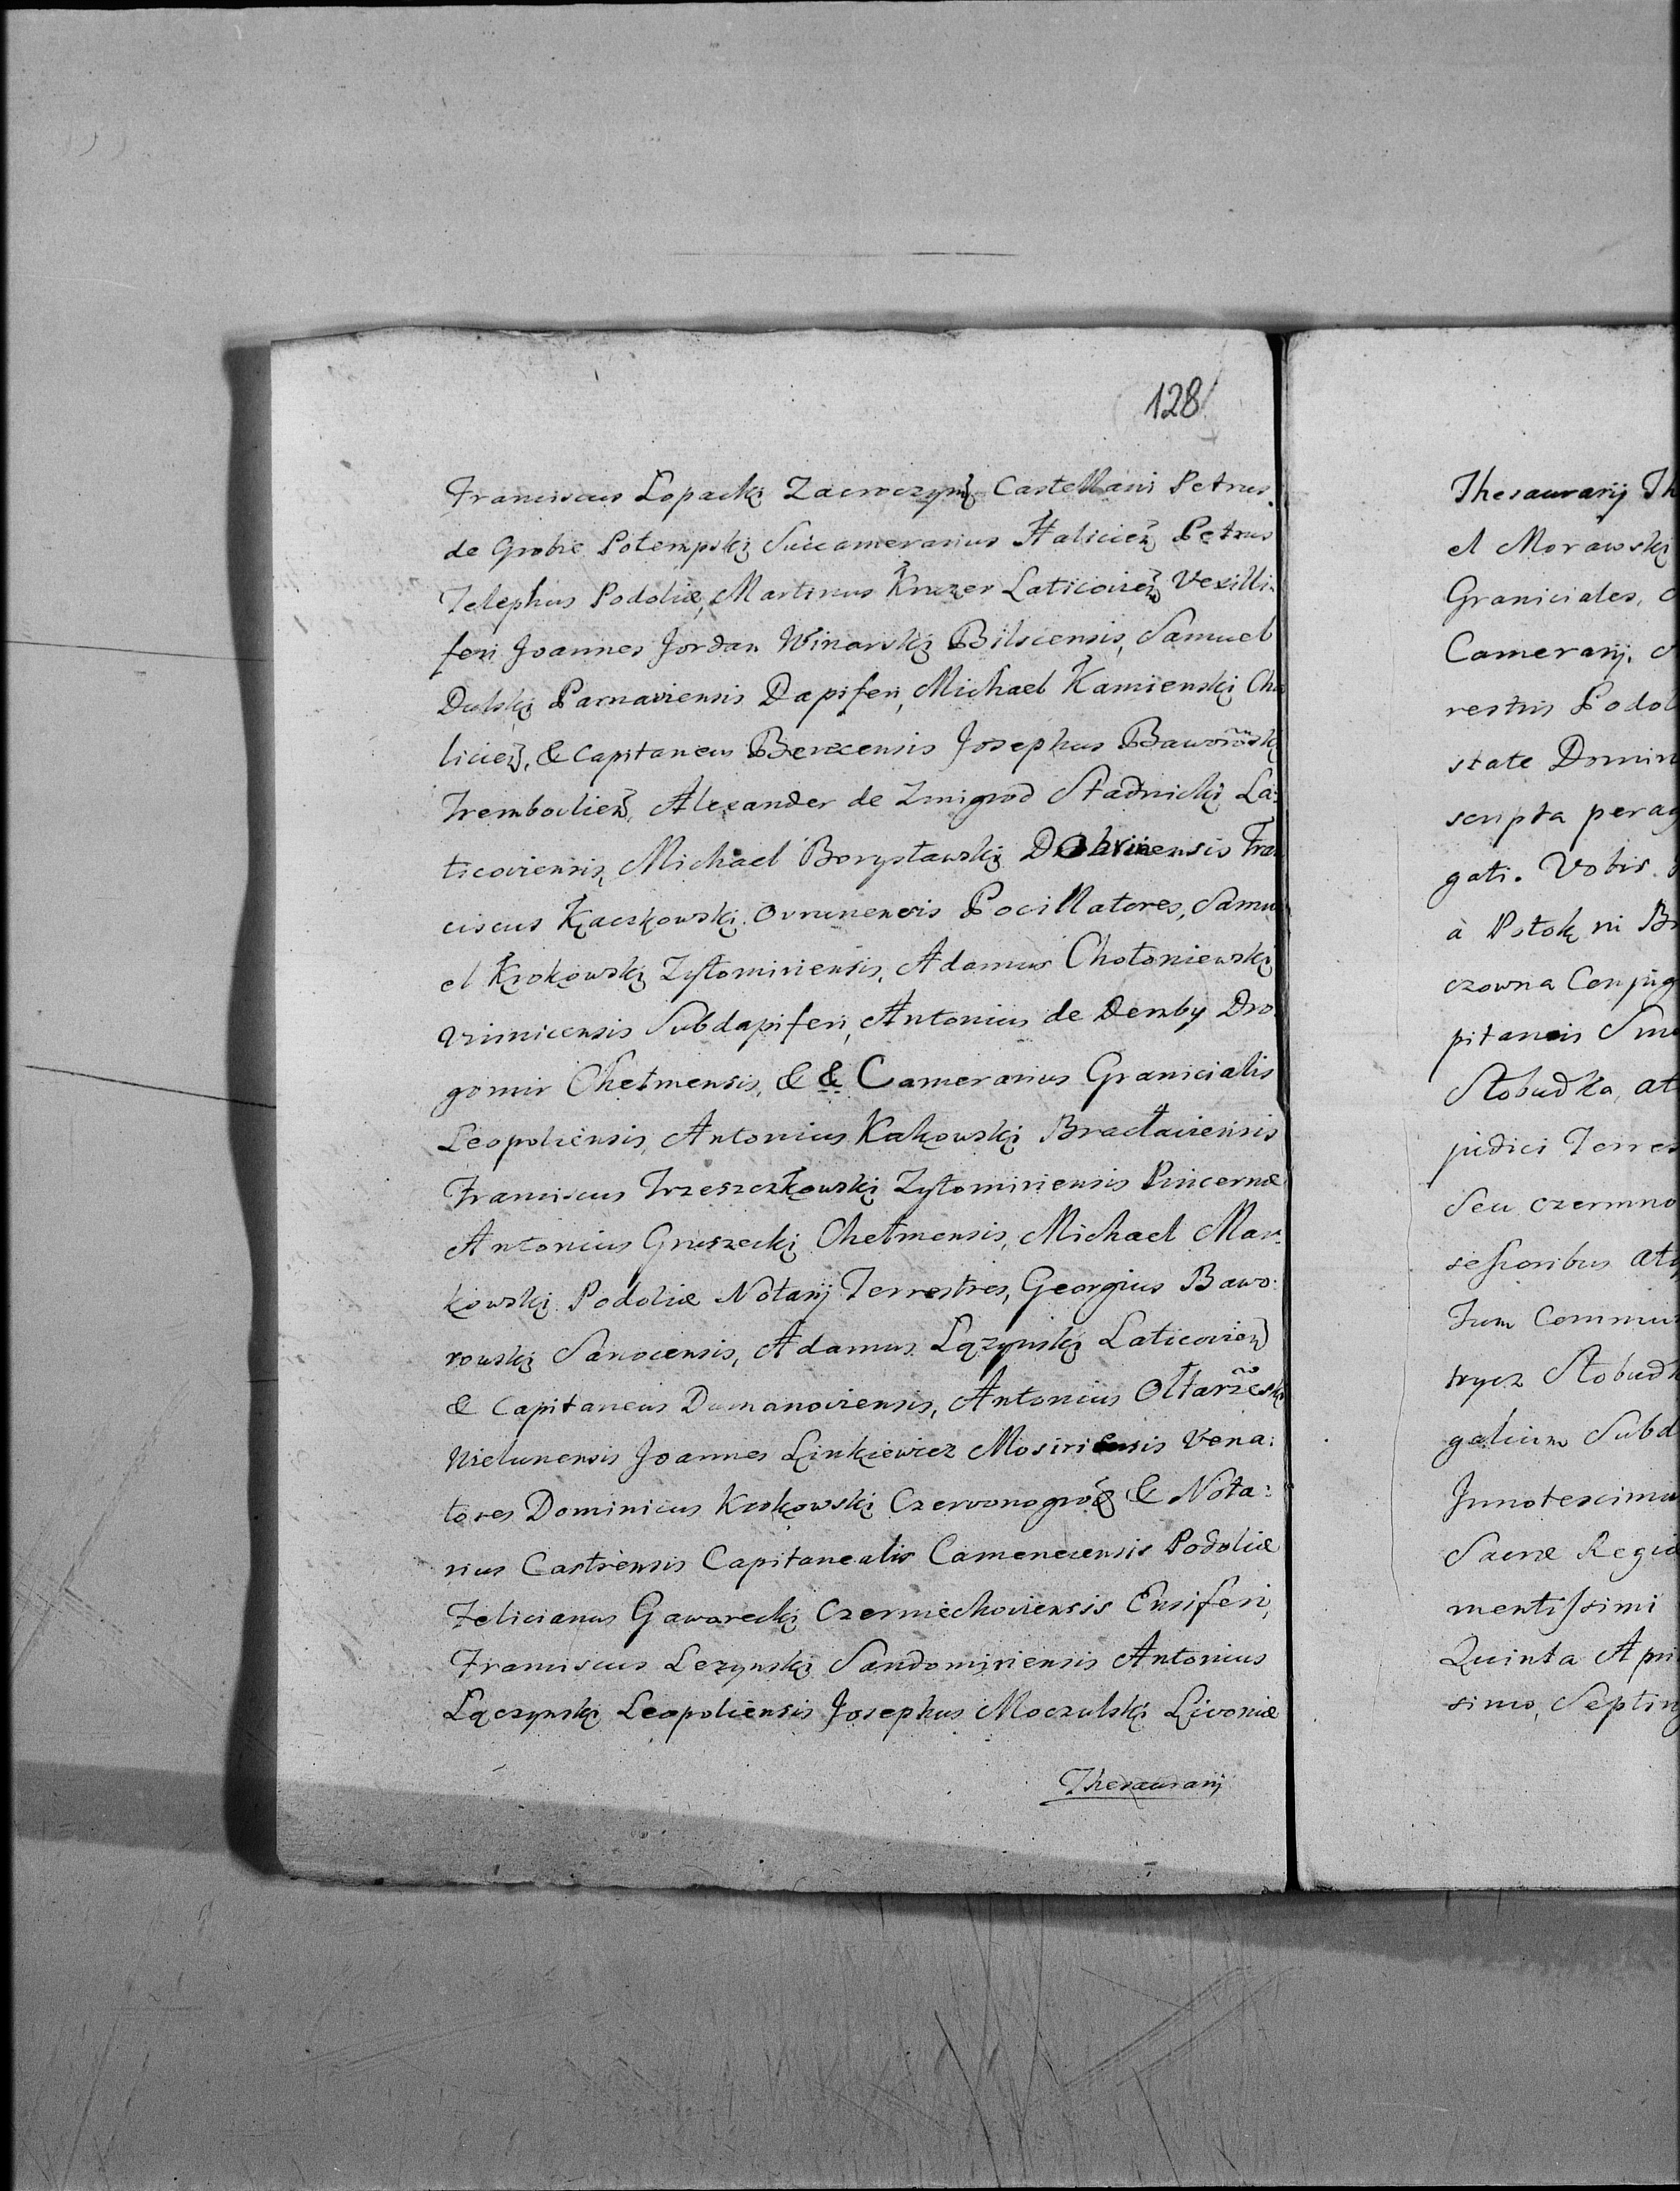 128
Franciscus Lopacki Zacroczyn Castellani Petrus
de Grobie Potempski Succamerarius Halicien Petrus
Telephus Podoliæ, Martinus Kruzer Laticovien Vexilli:
feri Joannes Jordan Winarski Bilscensis, Samuel
Dulski Parnaviensis Dapiferi, Michael Kamienski Cha
licien, & Capitaneus Berecensis Josephus Baworowski
Trembovlien, Alexander de Zmigrod Stadnicki La:
ticoviensis, Michael Borysławski Dobrinensis Fran
ciscus Kaczkowski Ovrucensis Pocillatores, Samu
el Krokowski Zytomiriensis, Adamus Chołoniewski
Subdapiferi, Antonius de Demby Dro
gomir Chełmensis, & & Camerarius Granicialis
Leopoliensis, Antonius Kakowski Braclaviensis
Franciscus Trzeszczkowski Zytomiriensis Pincernæ
Antonius Gruszecki Chełmensis, Michael Mar:
kowski Podoliæ Notarij Terrestres, Georgius Bawo:
rowski Sanocensis, Adamus Lązynski Laticovien
& Capitaneus Dumanoviensis, Antonius Ołtarzewski
Wielunensis Joannes Linkiewicz Mosiriensis Vena:
tores Dominicus Krokowski Czervonogród & Nota:
rius Castrensis Capitanealis Camenecensis Podoliæ
Felicianus Gaworecki Czerniechoviensis Ensiferi,
Franciscus Lezynski Sandomiriensis Antonius
Lączynski Leopoliensis Josephus Moczulski Livoniæ
Thesaurarij
Thesaurarij Th
et Morawski
Graniciales,
Camerarij,
restris Podol
state Domin
scripta perag
gati. Vobis
à Potok in Br
czowna Conjug
pitaneis Sme
Słobudka, at
judici Terres
Seu czermno
sessoribus atq
Tum Commun
trycz Słobudk
galium Subd
Innotescimus
Sacræ Regiæ
mentissimi
Quinta Apri
simo, Septing